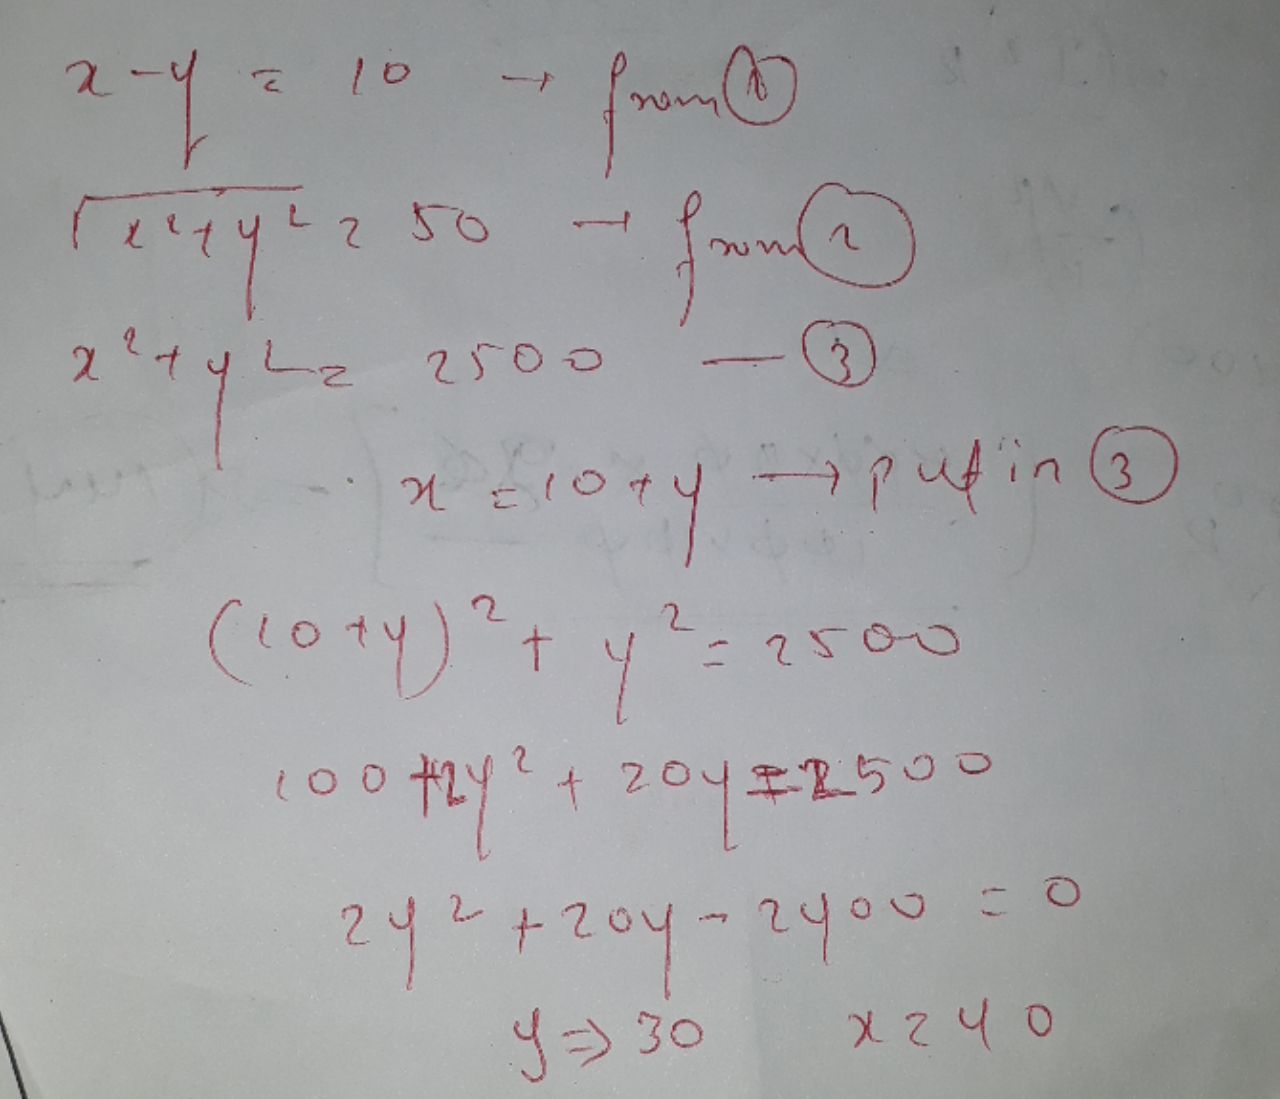 x - y = 10 → from ①
√x²+y² = 50 → from ②
x² + y² = 2500 — ③
x = 10 + y → put in ③
(10+y)² + y² = 2500
100 + 2y² + 20y = 2500
2y² + 20y - 2400 = 0
y ⇒ 30 x = 40